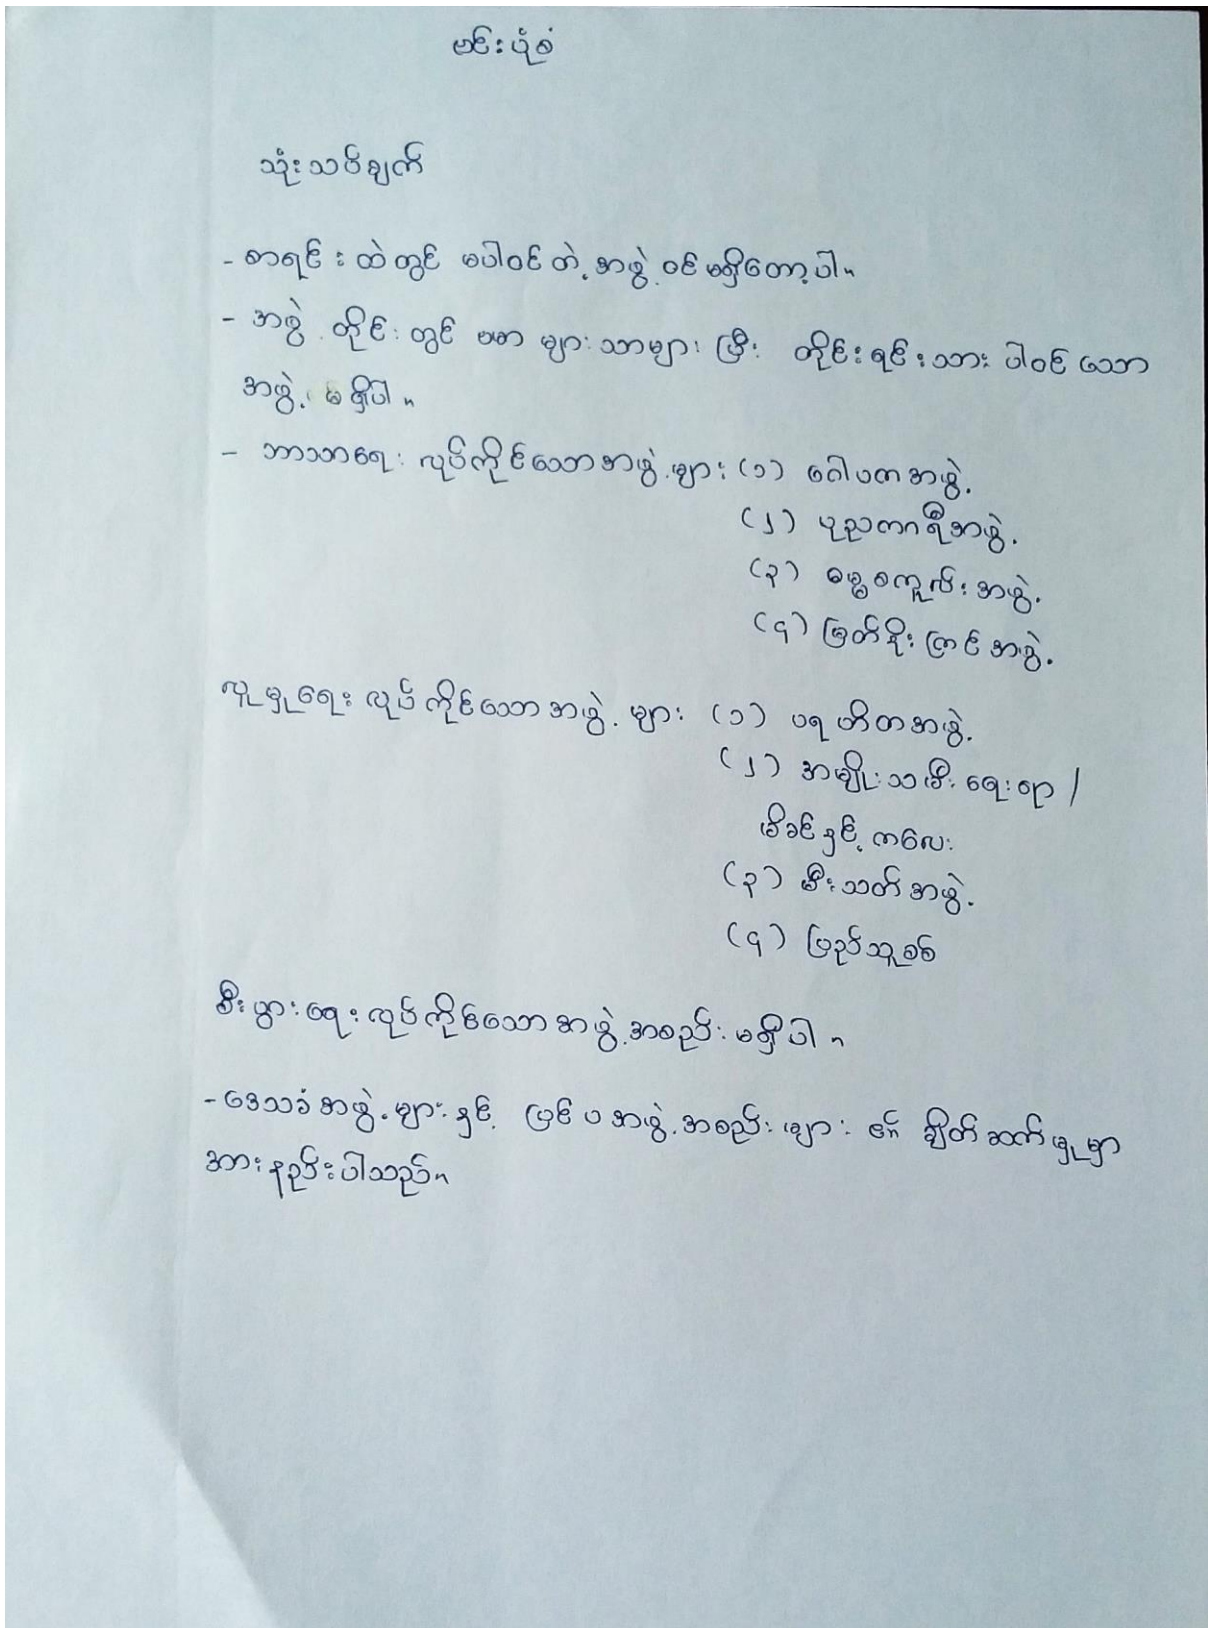 ဗင်းပုံစံ
သုံးသပ်ချက်
- စာရင်းထဲတွင် မပါဝင်တဲ့အဖွဲ့ဝင်မရှိတော့ပါ။
- အဖွဲ့တိုင်းတွင် ဗမာများသာများပြီး တိုင်းရင်းသားပါဝင်သော
အဖွဲ့ မရှိပါ။
- ဘာသာရေးလုပ်ကိုင်သောအဖွဲ့များ (၁) ဂေါပကအဖွဲ့
(၂) ပုညကာရီအဖွဲ့
(၃) ဓမ္မစကူးလ်အဖွဲ့
(၄) မြတ်စိုးကြင်အဖွဲ့
လူမှုရေးလုပ်ကိုင်သောအဖွဲ့များ (၁) ပရဟိတအဖွဲ့
(၂) အမျိုးသမီးရေးရာ /
မိခင်နှင့်ကလေး
(၃) မီးသတ်အဖွဲ့
(၄) ပြည်သူ့စစ်
စီးပွားရေးလုပ်ကိုင်သောအဖွဲ့အစည်းမရှိပါ။
- ဒေသခံအဖွဲ့များနှင့် ပြင်ပအဖွဲ့အစည်းများ၏ ချိတ်ဆက်မှုမှာ
အားနည်းပါသည်။